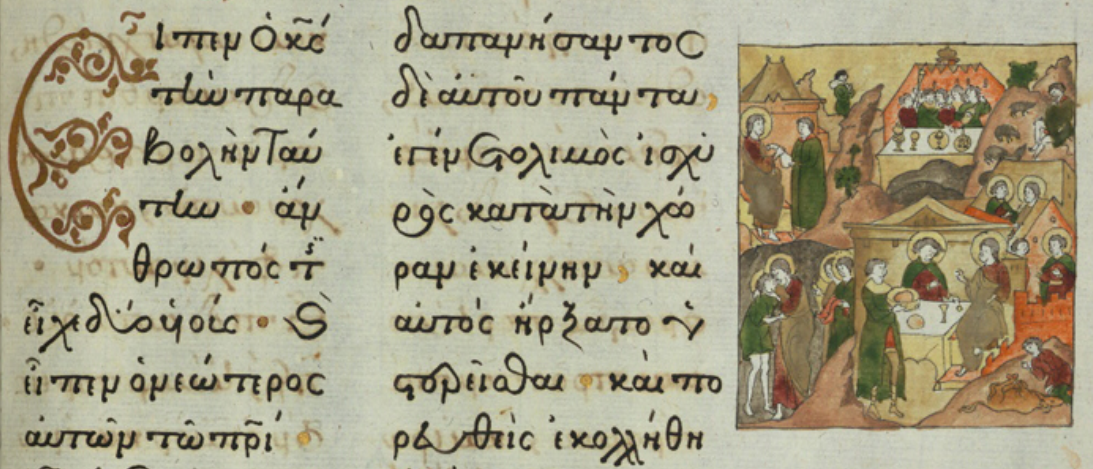 Εἶπεν ὁ κ̅ς̅
τὴν παρα
βολὴν ταύ
την · ἄν
θρωπός τις
εἶχε δύο υἱούς · ϗ
εἶπεν ὁ νεώτερος
αὐτῶν τῶ π̅ρ̅ί ·
δαπανήσαντος
δὲ αὐτοῦ πάντα,
ἐγένετο λιμὸς ἰσχυ
ρὸς κατὰ τὴν χώ
ραν ἐκείνην, καὶ
αὐτὸς ἤρξατο ὑ
στερεῖσθαι · καὶ πο
ρευθεὶς ἐκολλήθη